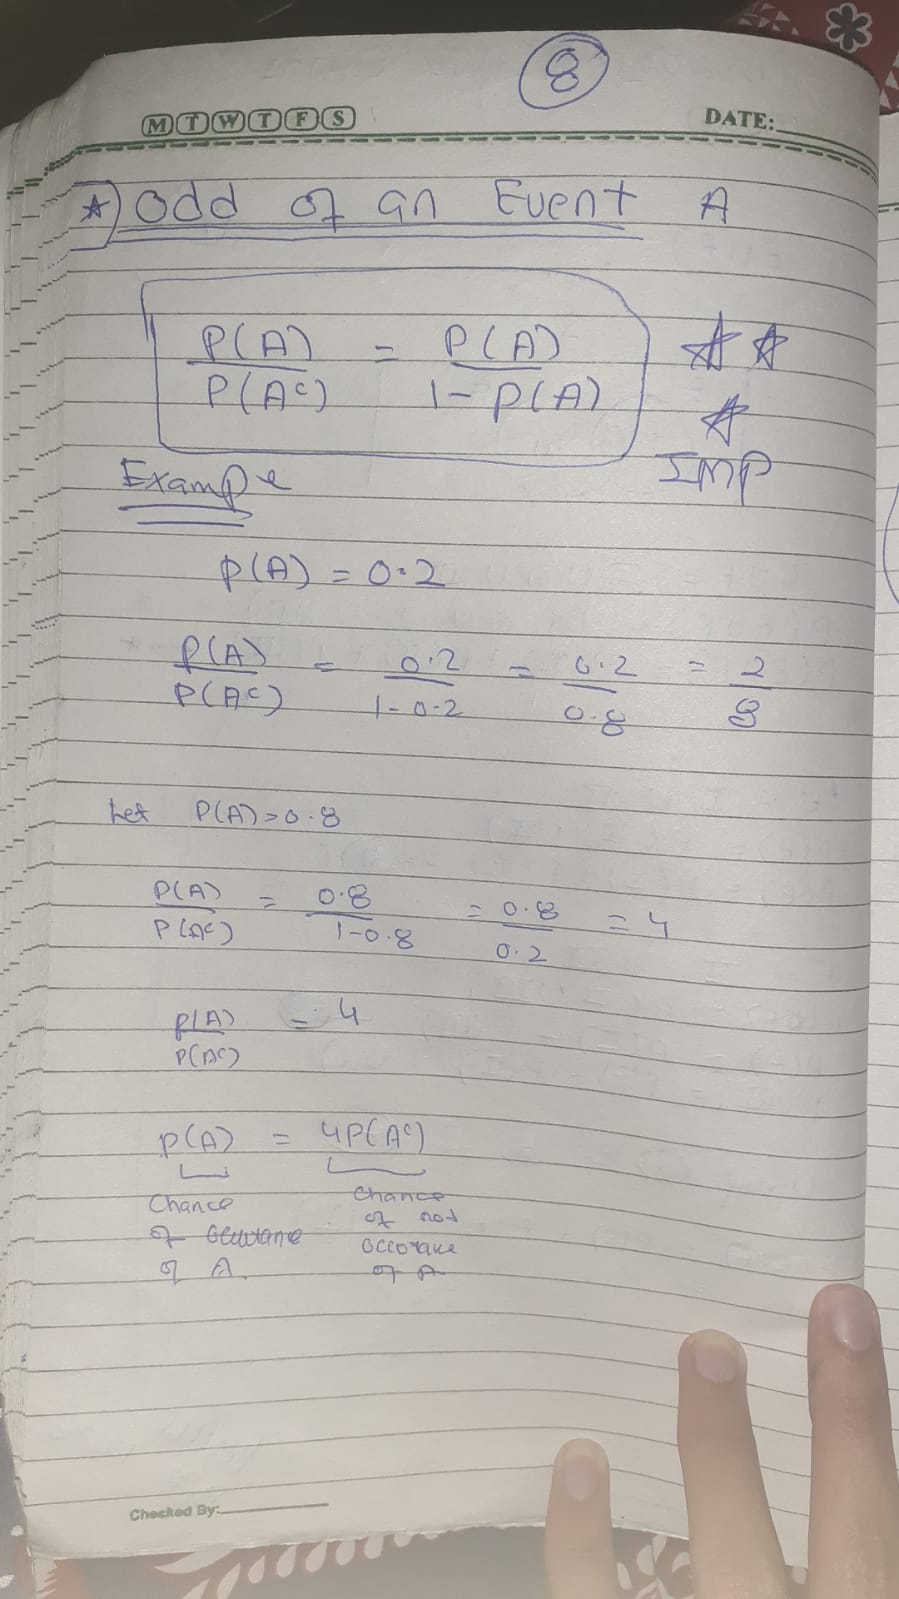 8
M T W T F S
DATE:
*) Odd of an Event A
P(A) / P(Aᶜ) = P(A) / 1 - P(A)
IMP
Exampe
P(A) = 0.2
P(A) / P(Aᶜ) = 0.2 / 1-0.2 = 0.2 / 0.8 = 2 / 8
Let P(A) = 0.8
P(A) / P(Aᶜ) = 0.8 / 1-0.8 = 0.8 / 0.2 = 4
P(A) / P(Aᶜ) = 4
P(A) = 4P(Aᶜ)
Chance
of
of A.
Chance
of not
of A
Checked By: